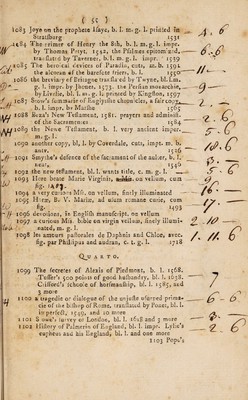 ( 55 )
1083 Joye on the prophete Isaye, b. l. m. g. l. printed in
Strasburg 1531
4..6
1084 The primer of Henry the 8th, b. l. m. g. l. impr.
by Thomas Pety t. 1542, the Psdmes epitom'zed,
translated by Taverner, b. l. m. g. l. impr. 1539
6..6
1085 The heroical devices of Paradin, cuts, at. b. 1591
the alcoran of the barefote friers, b. l. 1550
11..
1086 the breviary of Britayne translated by Twyne, bl. l. m.
g. l. impr. by Jhones, 1573, the Persian monarchie,
by Lisesle, bl. l. m. g. l. printed by Kingston, 1597
9..
1087 Stow's summarie of Englyshe chronicles, a fair copy,
b. l. impr. by Marshe 1565
2..
1088 Beza's New Testament, 1581. prayers and administ.
of the Sacramentes 1584
2..6
1089 the Newe Testament, b. l. very ancient imper.
m. g. l.
5..6
1090 another copy, bl. l. by Coverdale, cuts, impert. m.
antis 1536
18..6
1091 Smythe's defence of the sacrament of the aulter, b. l.
neez. 1546
3..
1092 the new testament, bl. l. wants title, c. m. g. l.
5..6
1093 Hore beate Marie Virginis, on vellum, cum
fig. 1497.
9..
1094 a very curious Mst. on vellum, finely illuminated
16..
1095 Horæ, B. V. Mariæ, ad usum romane curie, cum
fig. 1493
17..
1096 devotions, in English manuscript, on vellum
1097 a curious Mst. bible on virgin vellum, finely illumi-
nated, m. g. l.
2..10..
1098 les amours pastorales de Daphnis and Chloe, avec
fig. par Philippus and audran, c. t. g. l. 1718
1..11..6
QUARTO.
1099 The secretes of Alexis of Piedmont, b. l. 1568.
Tusser's 500 points of good husbandry, bl. l. 1638.
Clifford's schoole of horsemanship, bl. l. 1585, and
3 more
7
1100 a tragedie or dialogue of the unjuste usurped prima-
cie of the bishop of Rome, translated by Ponet, bl. l.
in perfect, 1549, and 10 more
6..6
1101 Stowe's survey of London, bl. l. 1618 and 3 more
3..
1102 History of Palmerin of England, bl. l. impr. Lylie's
eupheus and his England, bl. l. and one more
2..6
1103 Pope's